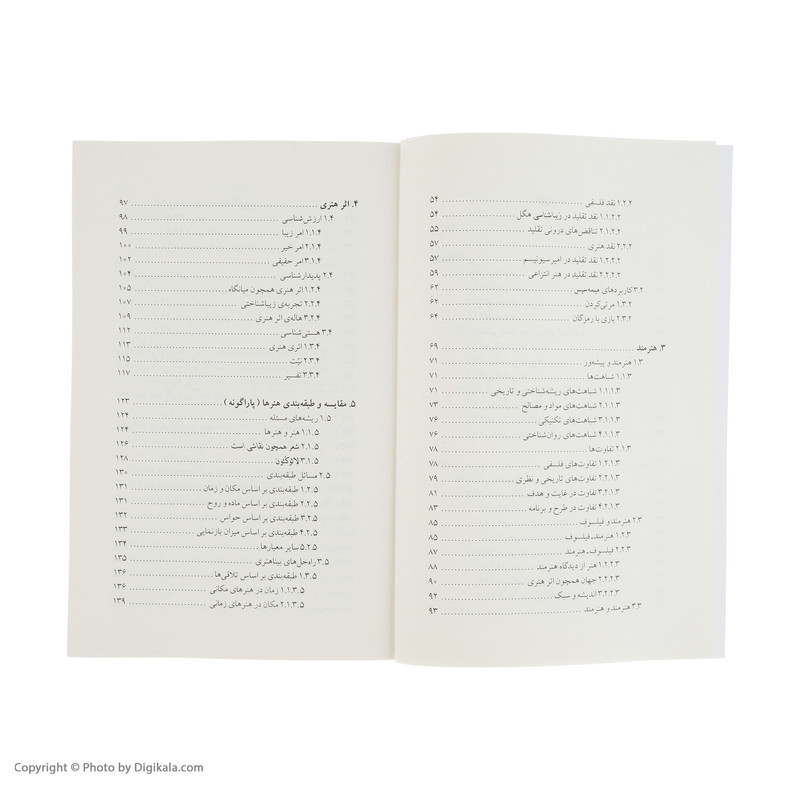 ۱.۲.۲ نقد فلسفی ۵۴
۱.۱.۲.۲ نقد تقلید در زیباشناسی هگل ۵۴
۲.۱.۲.۲ تناقض‌های درونی تقلید ۵۵
۲.۲.۲ نقد هنری ۵۷
۱.۲.۲.۲ نقد تقلید در امپرسیونیسم ۵۷
۲.۲.۲.۲ نقد تقلید در هنر انتزاعی ۵۹
۳.۲ کاربردهای میمه‌سیس ۶۲
۱.۳.۲ مرئی‌کردن ۶۲
۲.۳.۲ بازی با رمزگان ۶۴
۳. هنرمند ۶۹
۱.۳ هنرمند و پیشه‌ور ۷۱
۱.۱.۳ شباهت‌ها ۷۱
۱.۱.۱.۳ شباهت‌های ریشه‌شناختی و تاریخی ۷۱
۲.۱.۱.۳ شباهت‌های مواد و مصالح ۷۳
۳.۱.۱.۳ شباهت‌های تکنیکی ۷۶
۴.۱.۱.۳ شباهت‌های روان‌شناختی ۷۶
۲.۱.۳ تفاوت‌ها ۷۸
۱.۲.۱.۳ تفاوت‌های فلسفی ۷۸
۲.۲.۱.۳ تفاوت‌های تاریخی و نظری ۷۹
۳.۲.۱.۳ تفاوت در غایت و هدف ۸۱
۴.۲.۱.۳ تفاوت در طرح و برنامه ۸۳
۲.۳ هنرمند و فیلسوف ۸۵
۱.۲.۳ هنرمند-فیلسوف ۸۵
۲.۲.۳ فیلسوف-هنرمند ۸۷
۱.۲.۲.۳ هنر از دیدگاه هنرمند ۸۸
۲.۲.۲.۳ جهان همچون اثر هنری ۹۰
۳.۲.۲.۳ اندیشه و سبک ۹۲
۳.۳ هنرمند و هنرمند ۹۳
۴. اثر هنری ۹۷
۱.۴ ارزش‌شناسی ۹۸
۱.۱.۴ امر زیبا ۹۹
۲.۱.۴ امر خیر ۱۰۰
۳.۱.۴ امر حقیقی ۱۰۲
۲.۴ پدیدارشناسی ۱۰۴
۱.۲.۴ اثر هنری همچون میانگاه ۱۰۵
۲.۲.۴ تجربه‌ی زیباشناختی ۱۰۷
۳.۲.۴ هاله‌ی اثر هنری ۱۰۹
۳.۴ هستی‌شناسی ۱۱۲
۱.۳.۴ اثری هنری ۱۱۳
۲.۳.۴ نیّت ۱۱۵
۳.۳.۴ تفسیر ۱۱۷
۵. مقایسه و طبقه‌بندی هنرها (پاراگونه) ۱۲۳
۱.۵ ریشه‌های مسئله ۱۲۴
۱.۱.۵ هنر و هنرها ۱۲۴
۲.۱.۵ شعر همچون نقاشی است ۱۲۶
۳.۱.۵ لائوکُئون ۱۲۸
۲.۵ مسائل طبقه‌بندی ۱۳۰
۱.۲.۵ طبقه‌بندی بر اساس مکان و زمان ۱۳۱
۲.۲.۵ طبقه‌بندی بر اساس ماده و روح ۱۳۱
۳.۲.۵ طبقه‌بندی بر اساس حواس ۱۳۲
۴.۲.۵ طبقه‌بندی بر اساس میزان بازنمایی ۱۳۳
۵.۲.۵ سایر معیارها ۱۳۴
۳.۵ راه‌حل‌های بیناهنری ۱۳۵
۱.۳.۵ طبقه‌بندی بر اساس تلاقی‌ها ۱۳۶
۱.۱.۳.۵ زمان در هنرهای مکانی ۱۳۶
۲.۱.۳.۵ مکان در هنرهای زمانی ۱۳۹
Copyright © Photo by Digikala.com